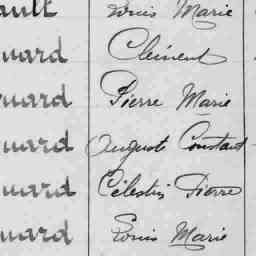 ault Louis Marie
uard Clément
uard Pierre Marie
uard Auguste Constant
uard Célestin Pierre
uard Louis Marie